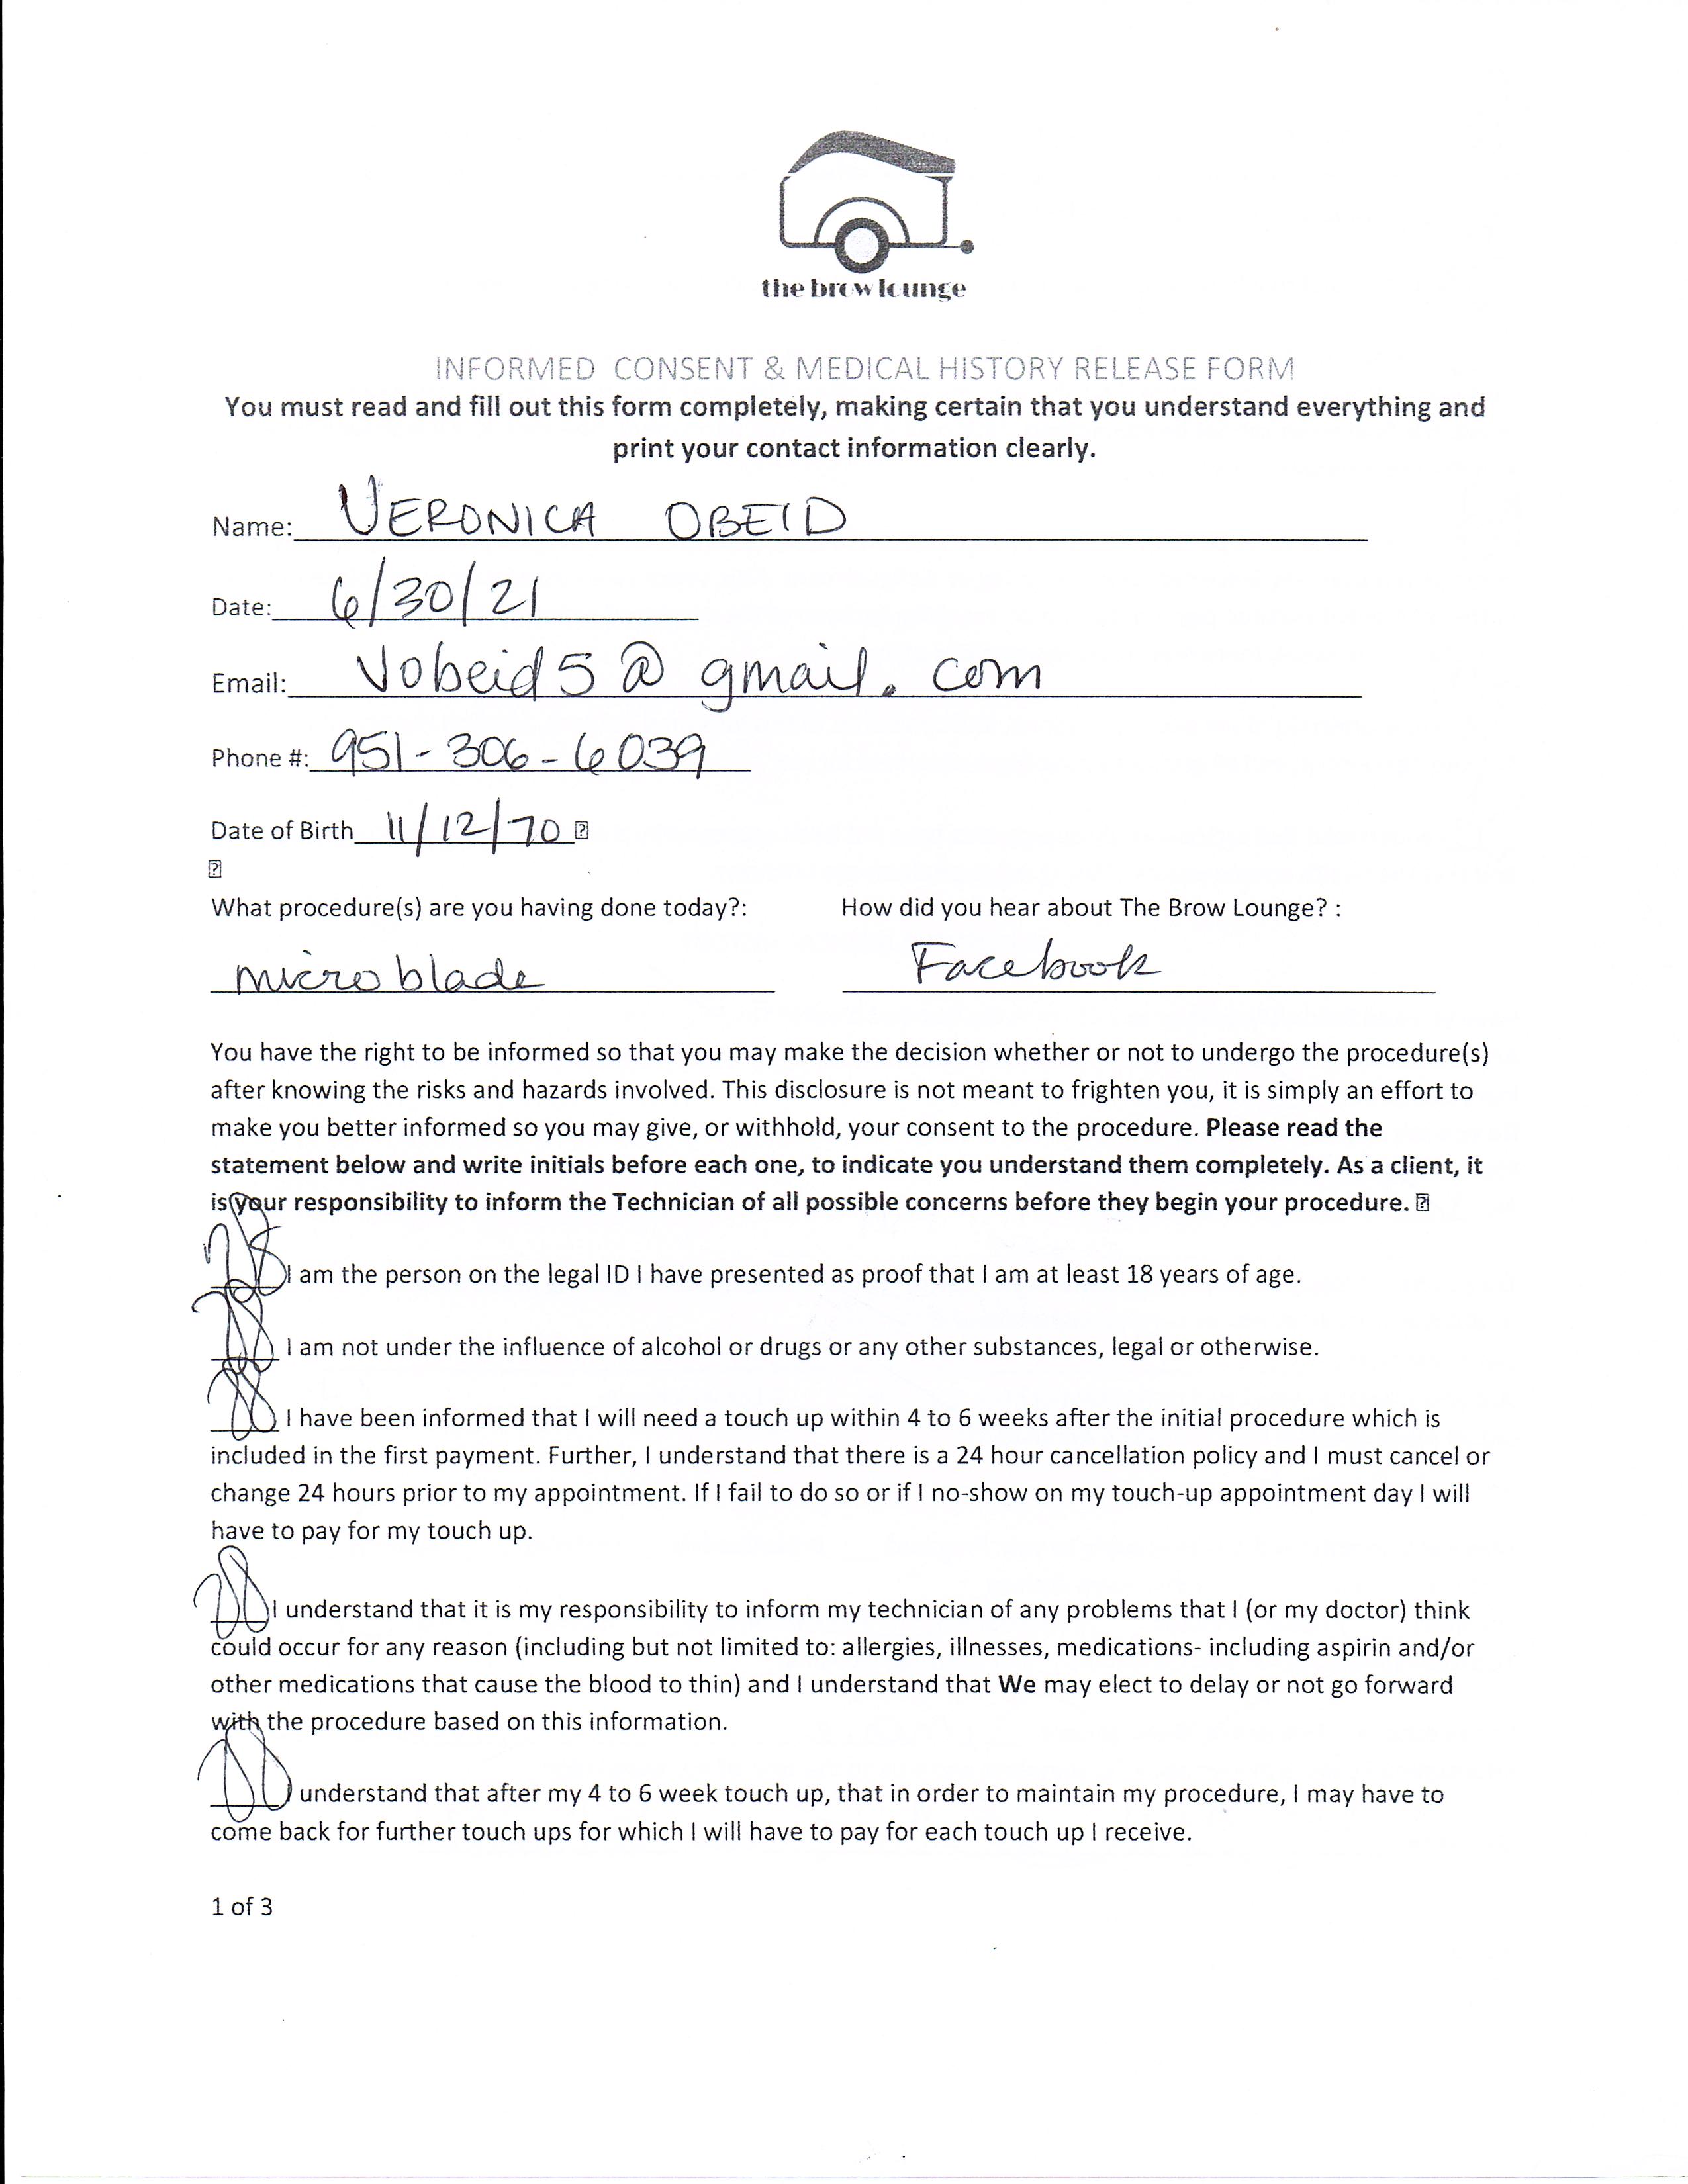 the brow lounge
INFORMED CONSENT & MEDICAL HISTORY RELEASE FORM
You must read and fill out this form completely, making certain that you understand everything and
print your contact information clearly.
Name: VERONICA OBEID
Date: 6/30/21
Email: Vobeid5@gmail.com
Phone #: 951-306-6039
Date of Birth 11/12/70
What procedure(s) are you having done today?: How did you hear about The Brow Lounge? :
microblade Facebook
You have the right to be informed so that you may make the decision whether or not to undergo the procedure(s)
after knowing the risks and hazards involved. This disclosure is not meant to frighten you, it is simply an effort to
make you better informed so you may give, or withhold, your consent to the procedure. Please read the
statement below and write initials before each one, to indicate you understand them completely. As a client, it
is your responsibility to inform the Technician of all possible concerns before they begin your procedure.
I am the person on the legal ID I have presented as proof that I am at least 18 years of age.
I am not under the influence of alcohol or drugs or any other substances, legal or otherwise.
I have been informed that I will need a touch up within 4 to 6 weeks after the initial procedure which is
included in the first payment. Further, I understand that there is a 24 hour cancellation policy and I must cancel or
change 24 hours prior to my appointment. If I fail to do so or if I no-show on my touch-up appointment day I will
have to pay for my touch up.
I understand that it is my responsibility to inform my technician of any problems that I (or my doctor) think
could occur for any reason (including but not limited to: allergies, illnesses, medications- including aspirin and/or
other medications that cause the blood to thin) and I understand that We may elect to delay or not go forward
with the procedure based on this information.
I understand that after my 4 to 6 week touch up, that in order to maintain my procedure, I may have to
come back for further touch ups for which I will have to pay for each touch up I receive.
1 of 3